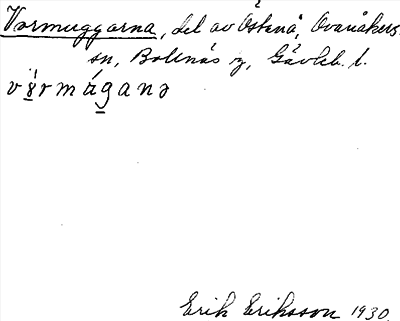 Varmuggarna, del av Östanå, Ovanåkers
sn, Bollnäs zg, Gävleb. l.
Erik Eriksson 1930.